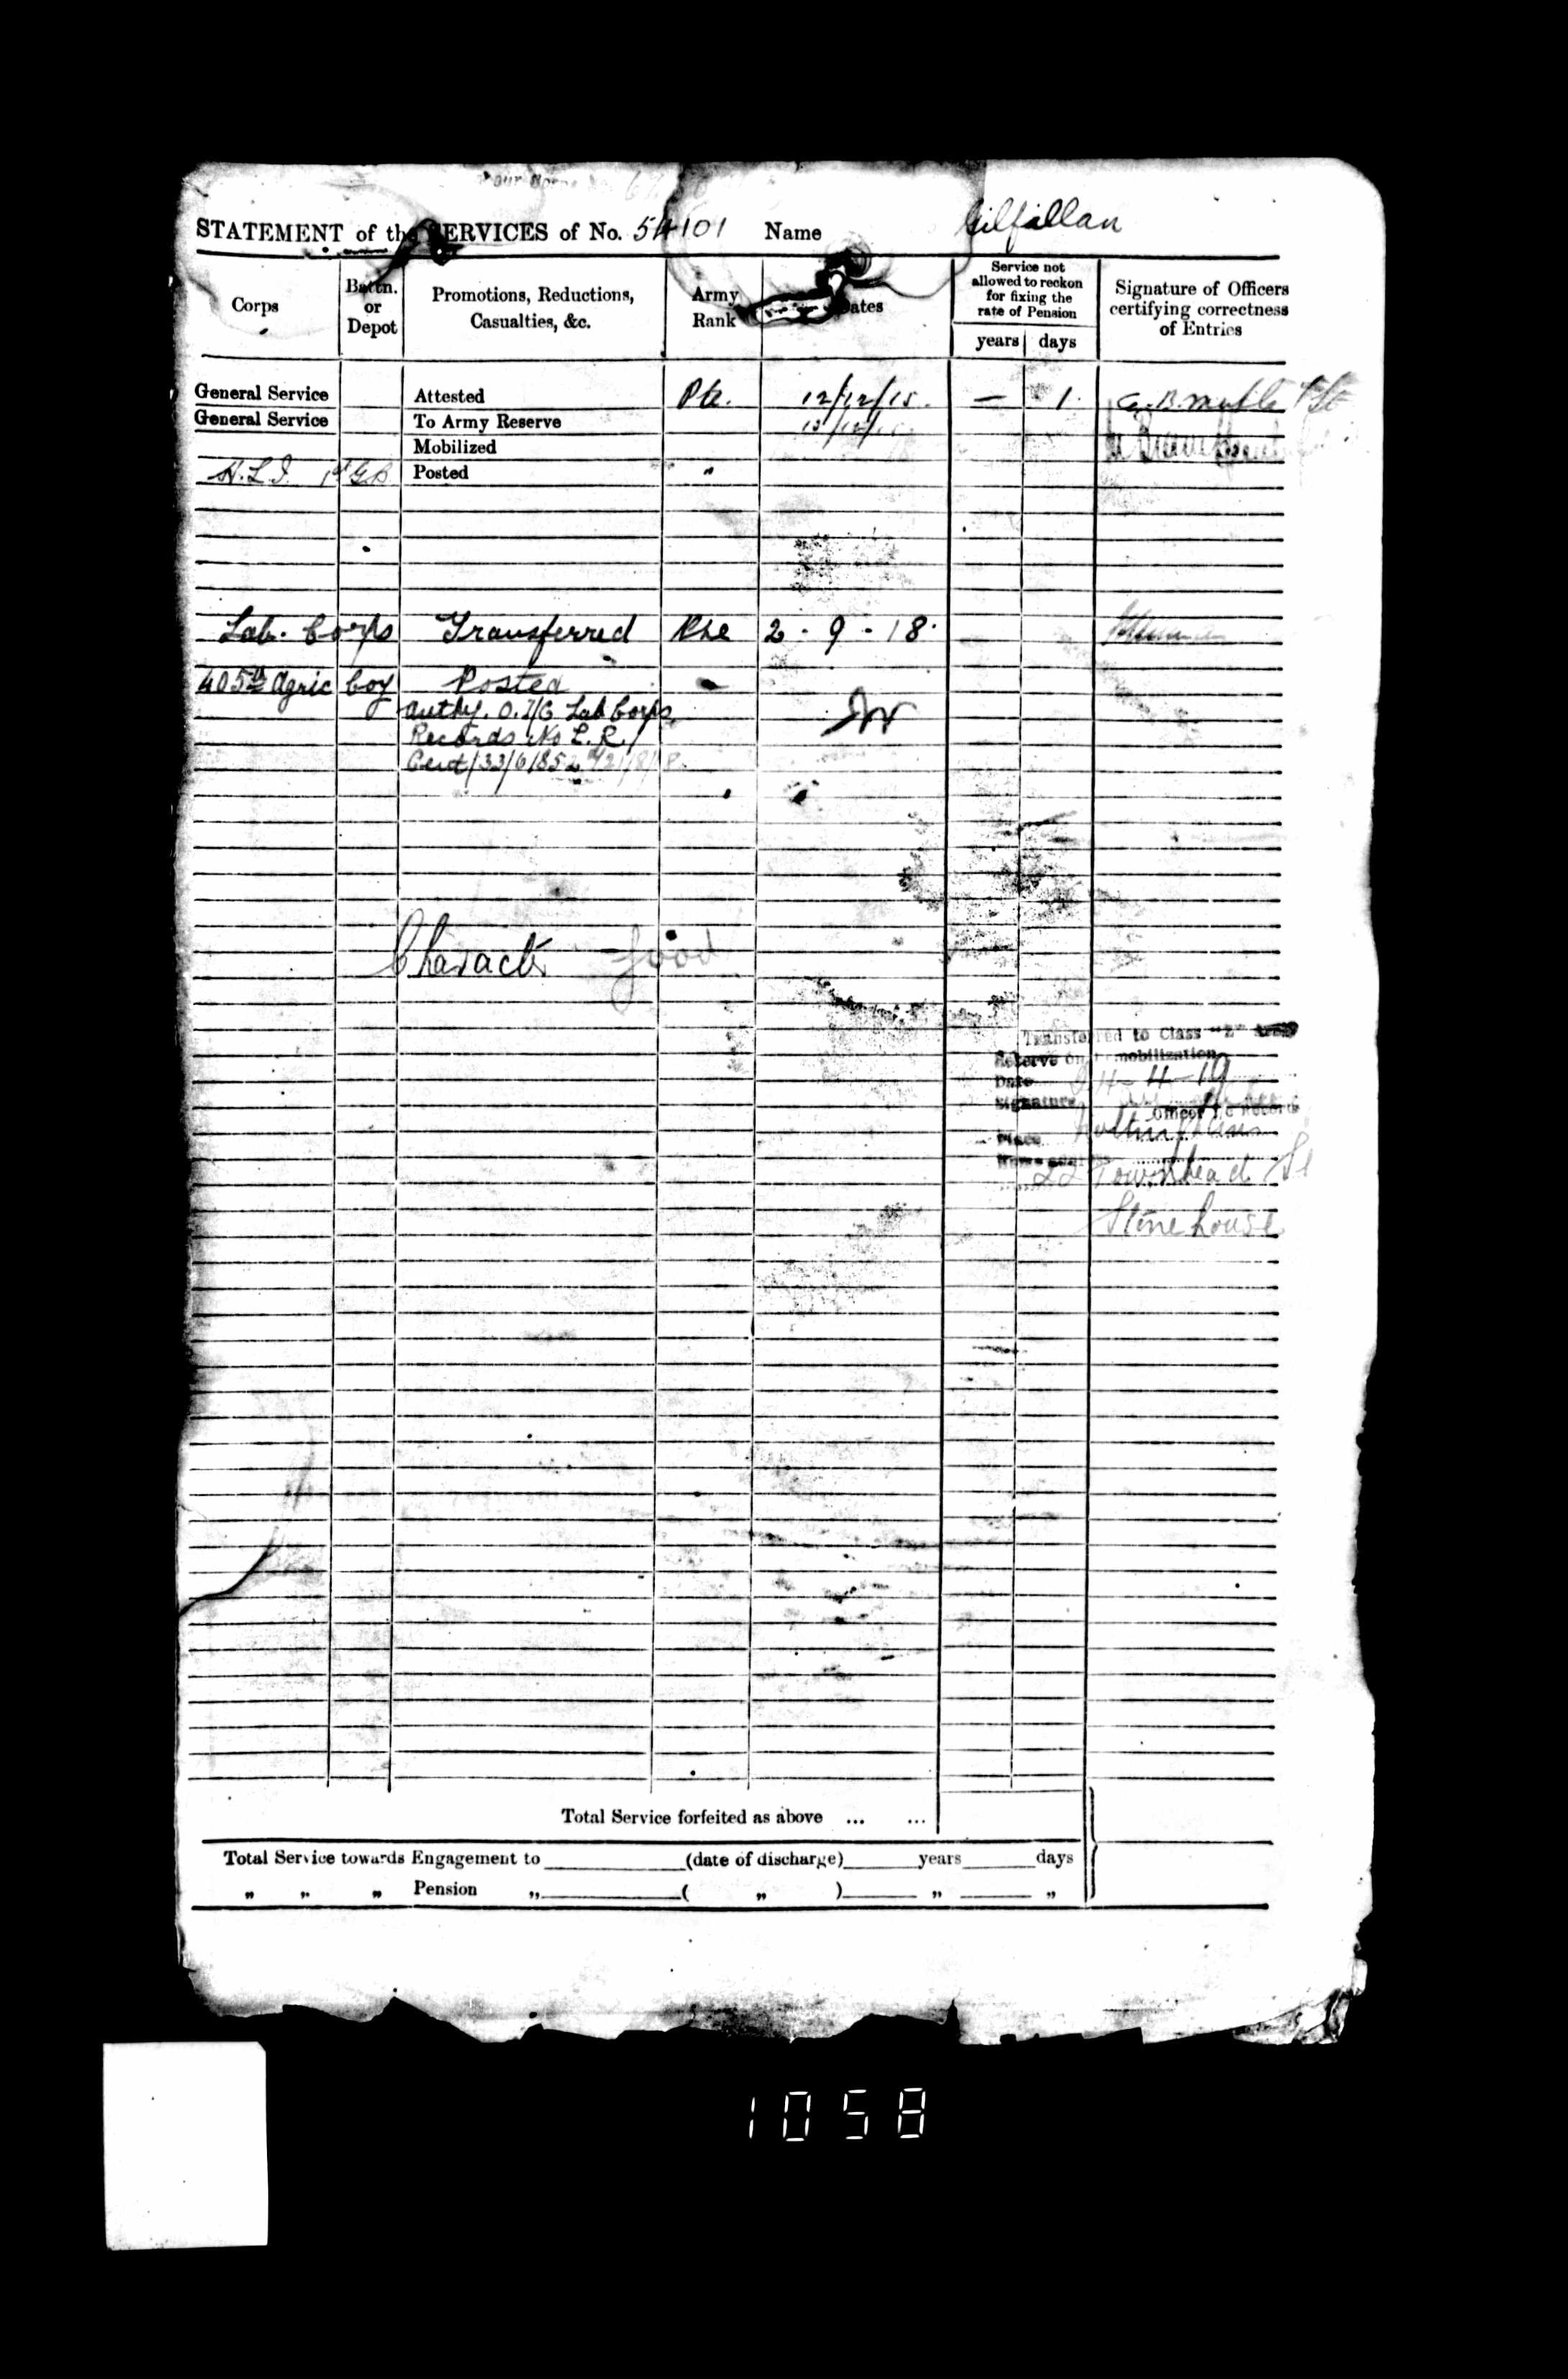 STATEMENT of the SERVICES of No. 54101 Name Gilfillan
Corps
Battn. or Depot
Promotions, Reductions, Casualties, &c.
Army Rank
Dates
Service not allowed to reckon for fixing the rate of Pension
years days
Signature of Officers certifying correctness of Entries
General Service Attested Pte. 12/12/15. — 1.
General Service To Army Reserve 13/12/15
Mobilized
H.L.I. 1st G.B. Posted "
Lab. Corps Transferred Pte 2 - 9 - 18.
405th Agric Coy Posted
Authy. O. I/C Lab Corps
Records No L.R/
Cert/33/6/852
Character Good
Transferred to Class "Z" Army
Reserve on Demobilization
Date 4 - 19
Signature
Officer i/c Records
Place
Home address
22 Townhead St
Stonehouse
Total Service forfeited as above ... ...
Total Service towards Engagement to (date of discharge) years days
„ „ „ Pension „ ( „ ) „ „
1058